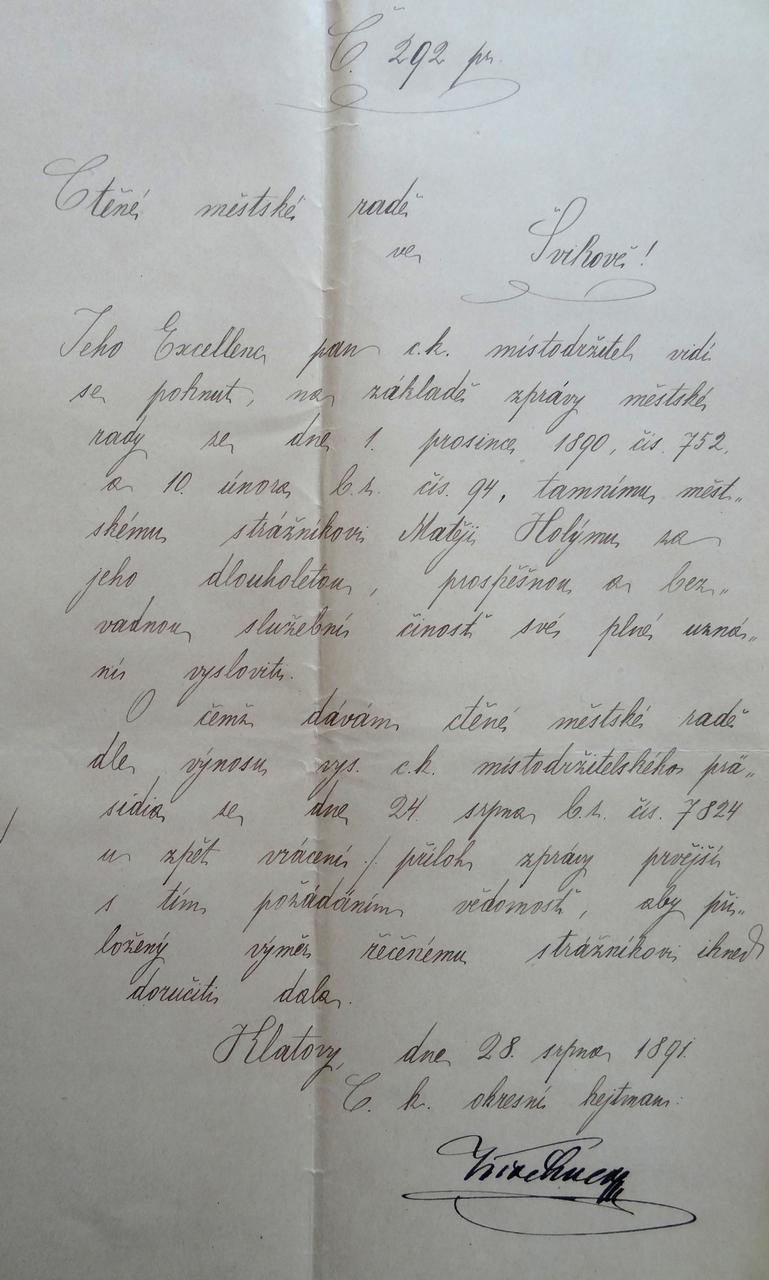 Č. 292 pr.
Ctěné městské radě
ve Švihově!
Jeho Excellenc pan c. k. místodržitel vidí
se pohnut, na základě zprávy městské
rady ze dne 1. prosince 1890, čís. 752.
a 10. února b. r. čís. 94, tamnímu měst„
skému strážníkovi Matěji Holýmu za
jeho dlouholetou, prospěšnou a bez„
vadnou služební činosť své plné uzná„
ní vysloviti.
O čemž dávám ctěné městské radě
dle výnosu vys. c. k. místodržitelského prä„
sidia ze dne 24. srpna b. r. čís. 7824
u zpět vrácení ./. příloh zprávy prvější
s tím požádáním vědomosť, aby při„
ložený výměr řečenému strážníkovi ihned
doručiti dala.
Klatovy, dne 28. srpna 1891.
C. k. okresní hejtman: